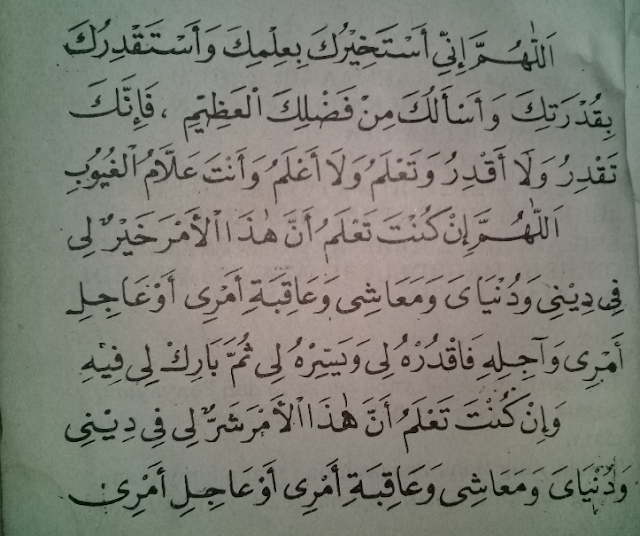 اَللّٰهُمَّ اِنِّي أَسْتَخِيْرُكَ بِعِلْمِكَ وَأَسْتَقْدِرُكَ
بِقُدْرَتِكَ وَأَسْأَلُكَ مِنْ فَضْلِكَ الْعَظِيْمِ ، فَإِنَّكَ
تَقْدِرُ وَلَا أَقْدِرُ وَتَعْلَمُ وَلَا أَعْلَمُ وَأَنْتَ عَلَّامُ الْغُيُوْبِ
اَللّٰهُمَّ إِنْ كُنْتَ تَعْلَمُ أَنَّ هٰذَا الْأَمْرَ خَيْرٌ لِى
فِى دِيْنِى وَدُنْيَاىَ وَمَعَاشِى وَعَاقِبَةِ أَمْرِى أَوْ عَاجِلِ
أَمْرِى وَآجِلِهِ فَاقْدُرْهُ لِى وَيَسِّرْهُ لِى ثُمَّ بَارِكْ لِى فِيْهِ
وَإِنْ كُنْتَ تَعْلَمُ أَنَّ هٰذَا الْأَمْرَ شَرٌّ لِى فِى دِيْنِى
وَدُنْيَاىَ وَمَعَاشِى وَعَاقِبَةِ أَمْرِى أَوْ عَاجِلِ أَمْرِى